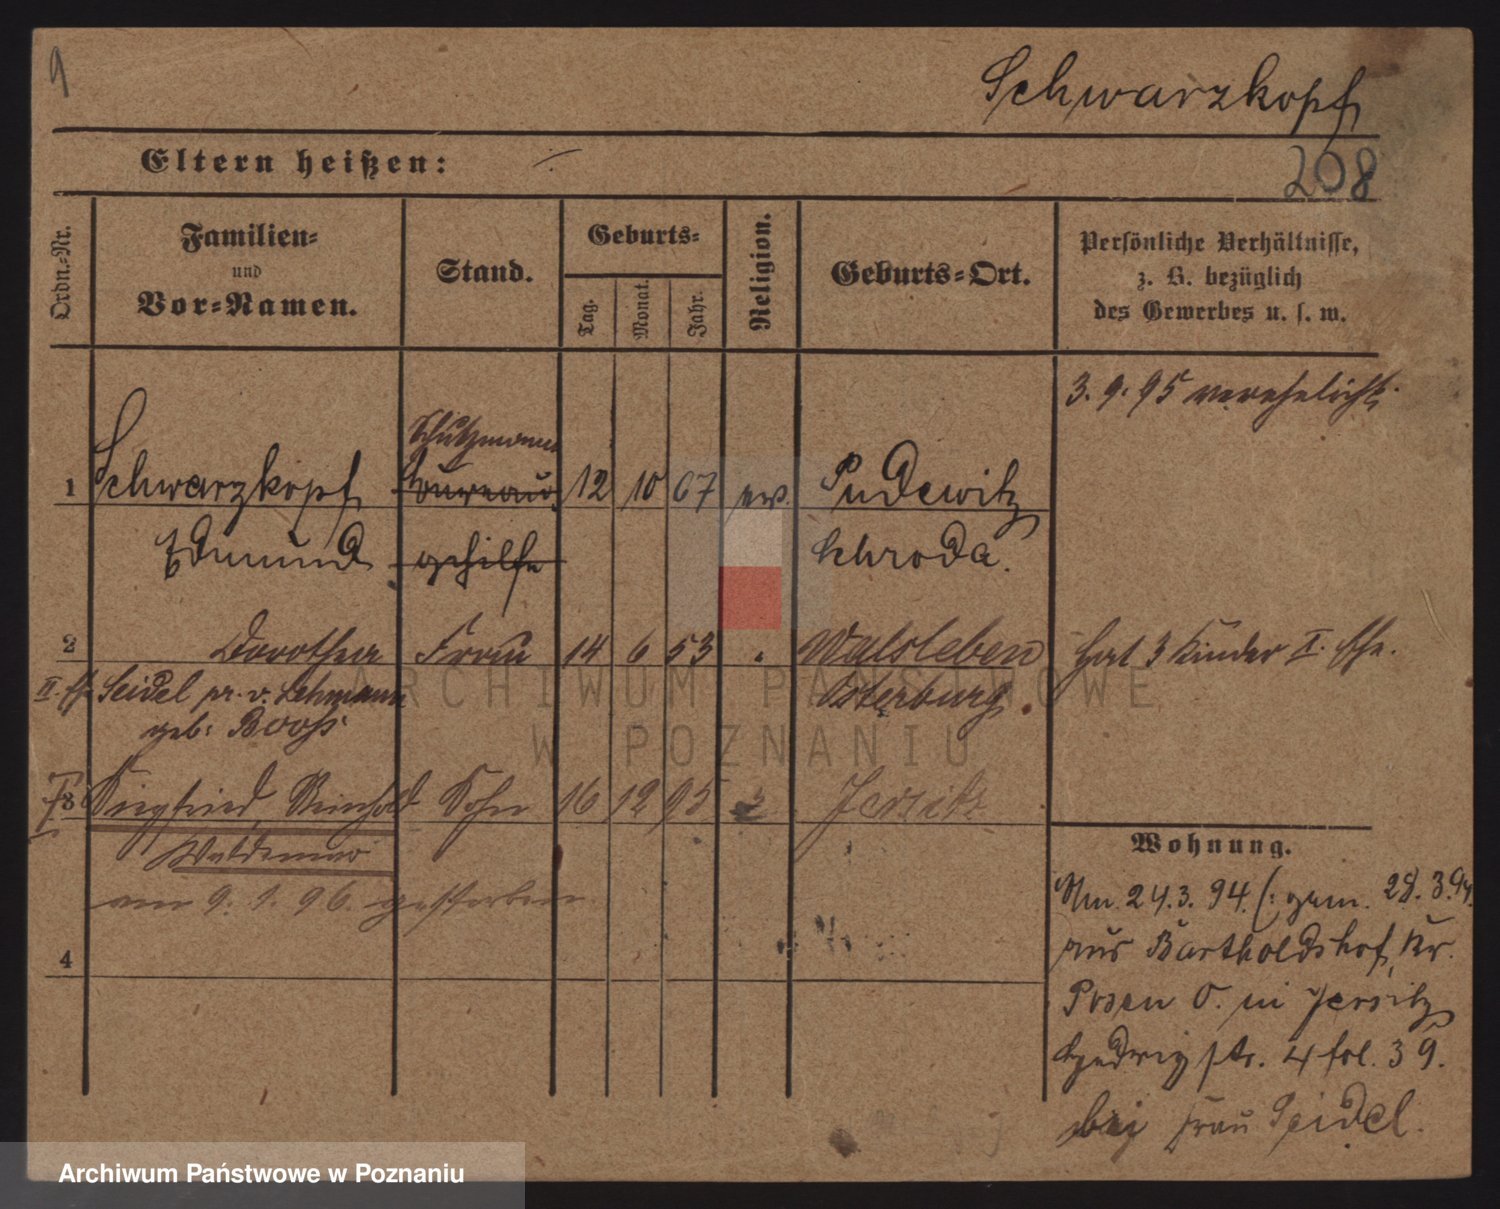 9
Schwarzkopf
Eltern heißen:
208
Ordn.-Nr.
Familien-
und
Vor-Namen.
Stand.
Geburts-
Tag.
Monat.
Jahr.
Religion.
Geburts-Ort.
Persönliche Verhältnisse,
z. B. bezüglich
des Gewerbes u. s. w.
3. 9. 95 verehelicht.
Schutzmann
1 Schwarzkopf Bureau- 12 10 67 ev. Pudewitz
Edmund gehilfe Schroda.
2 Dorothea Frau 14 6 53 Walsleben Hat 3 Kinder I. Ehe.
II. Ehe Seidel pr. v. Lehmann Osterburg.
geb: Booß
3 Siegfried, Reinhold Sohn 16 12 95 Jersitz
Waldemar
am 9. 1. 96. gestorben
4
Wohnung.
Am 24.3.94. (: gem. 28.3.94.
aus Bartholdshof, Kr.
Posen O. in Jersitz
Hedwig str. 4 fol. 39.
bei Frau Seidel.
ARCHIWUM PAŃSTWOWE
W POZNANIU
Archiwum Państwowe w Poznaniu